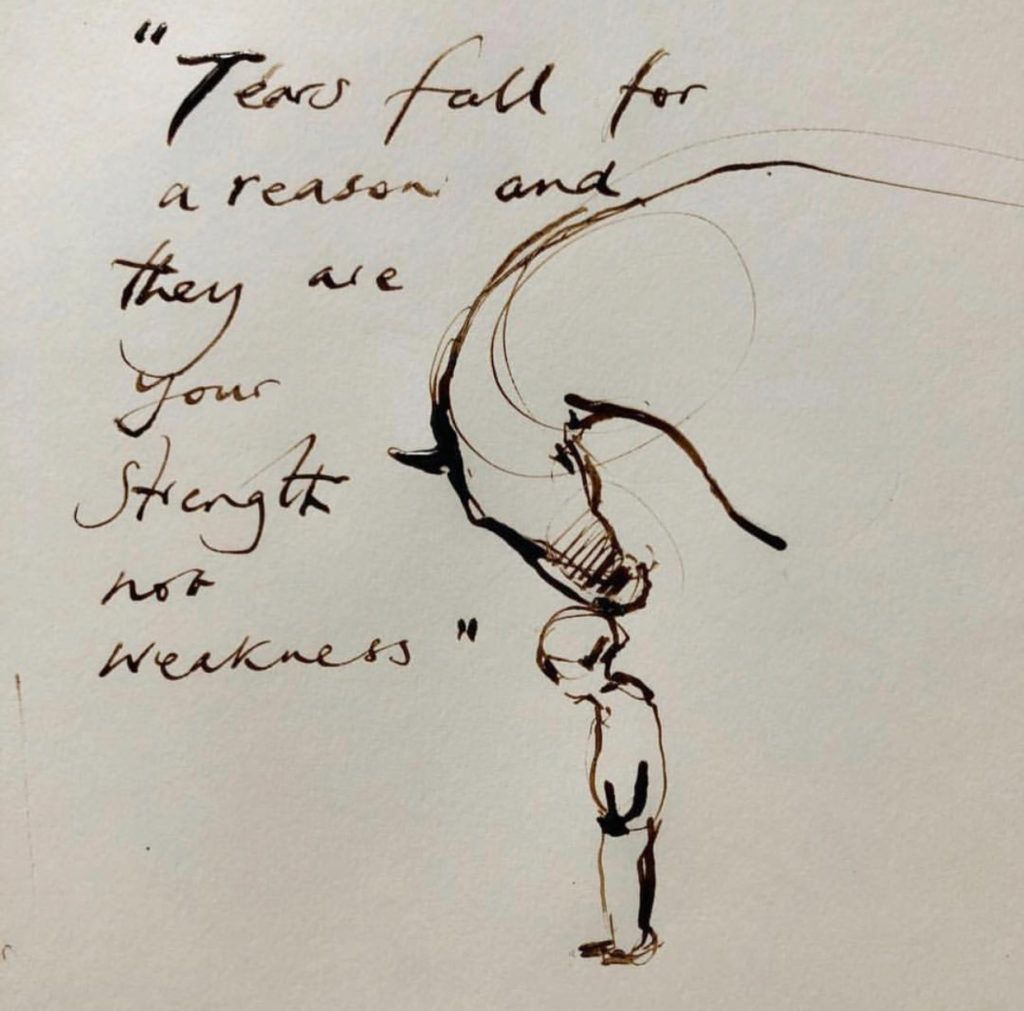 "Tears fall for
a reason and
they are
your
Strength
not
weakness"